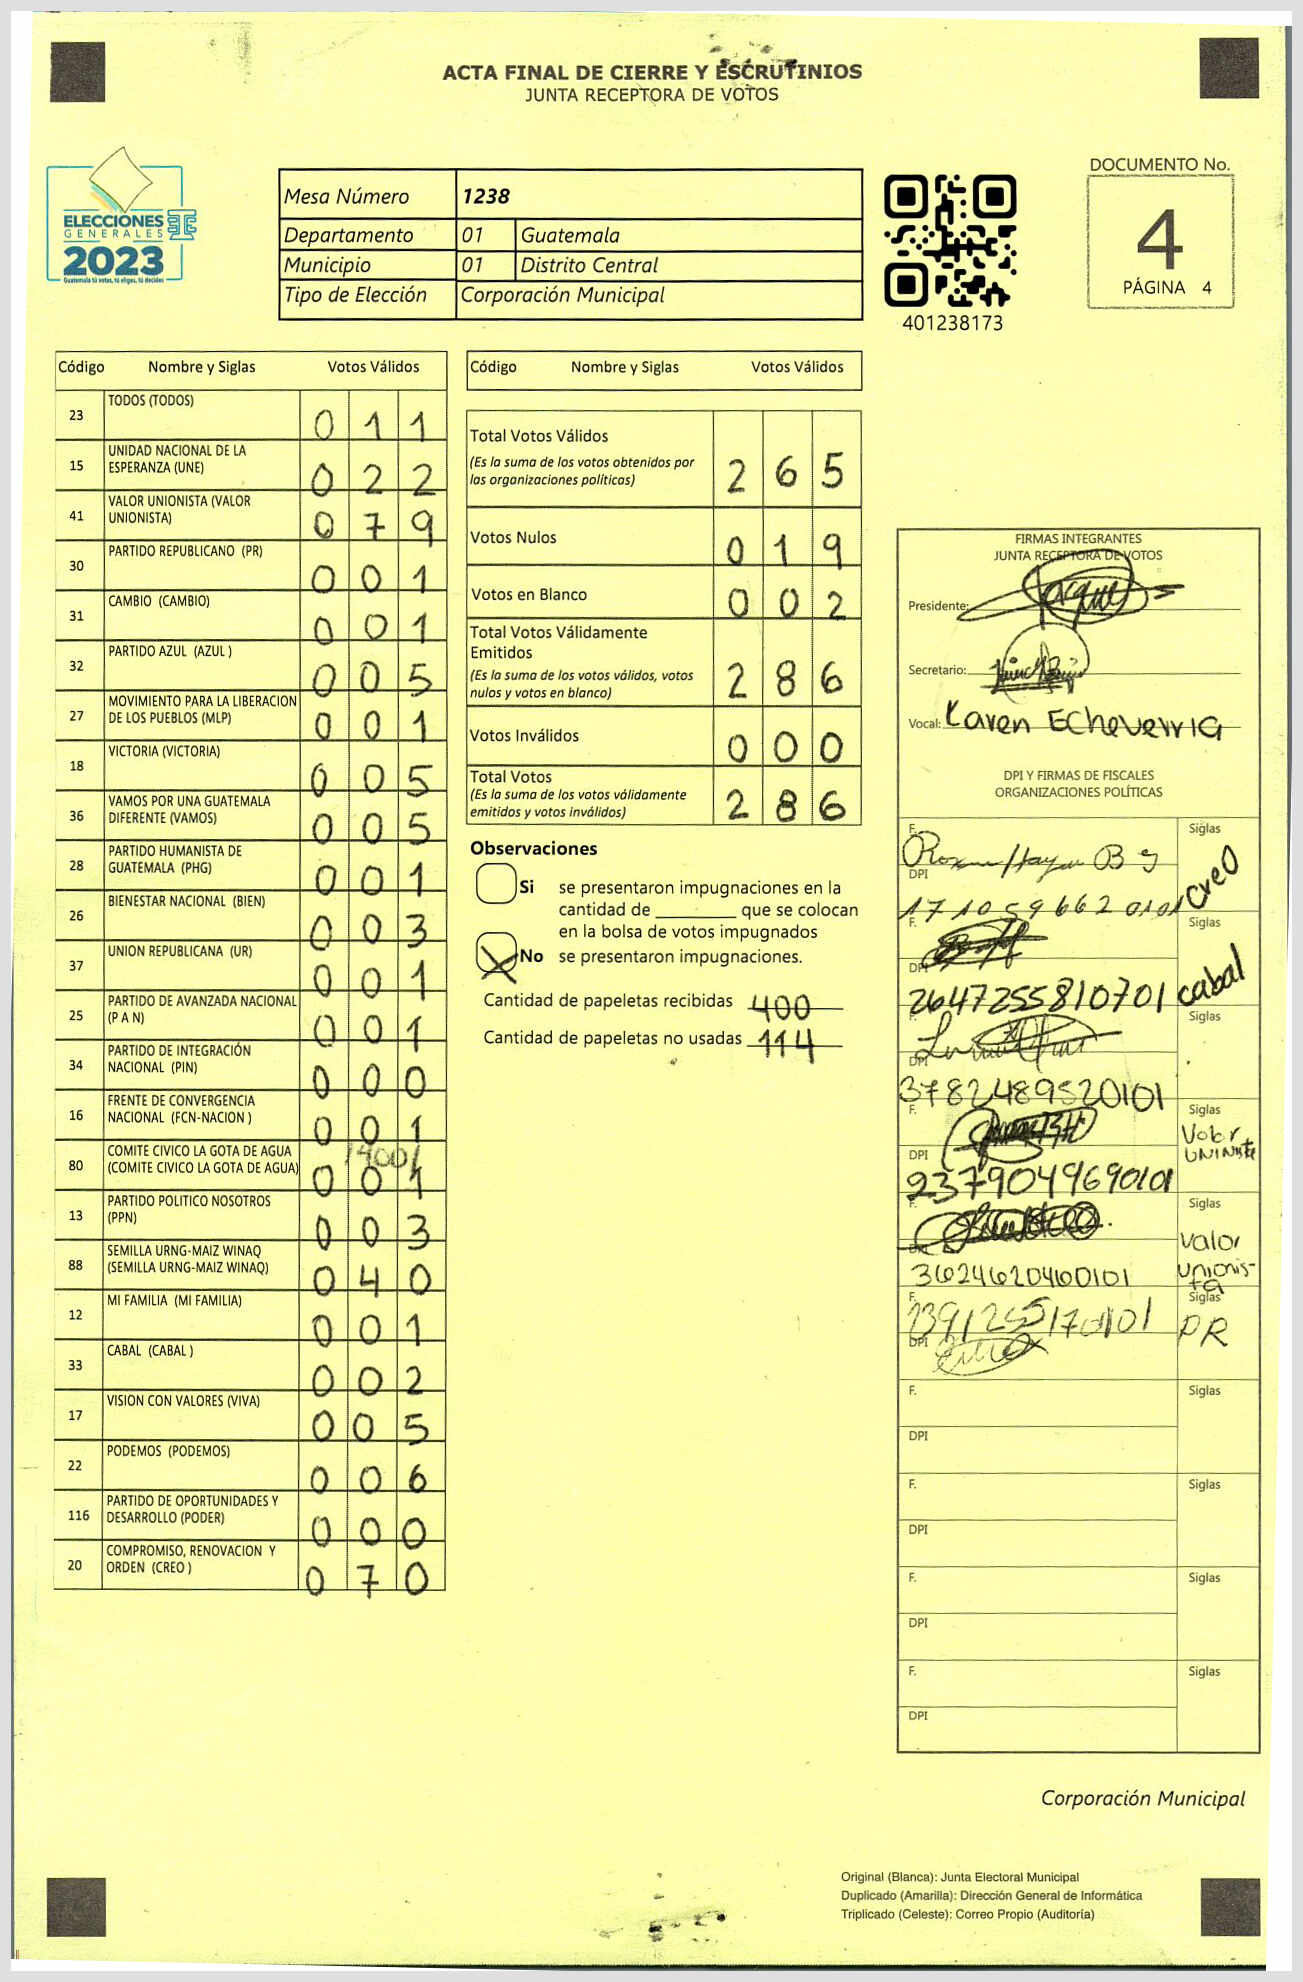 ACTA FINAL DE CIERRE Y ESCRUTINIOS
JUNTA RECEPTORA DE VOTOS
ELECCIONES
GENERALES
2023
Guatemala tú votas, tú eliges, tú decides
Mesa Número 1238
Departamento 01 Guatemala
Municipio 01 Distrito Central
Tipo de Elección Corporación Municipal
401238173
DOCUMENTO No.
4
PÁGINA 4
Código Nombre y Siglas Votos Válidos
23 TODOS (TODOS) 0 1 1
15 UNIDAD NACIONAL DE LA ESPERANZA (UNE) 0 2 2
41 VALOR UNIONISTA (VALOR UNIONISTA) 0 7 9
30 PARTIDO REPUBLICANO (PR) 0 0 1
31 CAMBIO (CAMBIO) 0 0 1
32 PARTIDO AZUL (AZUL ) 0 0 5
27 MOVIMIENTO PARA LA LIBERACION DE LOS PUEBLOS (MLP) 0 0 1
18 VICTORIA (VICTORIA) 0 0 5
36 VAMOS POR UNA GUATEMALA DIFERENTE (VAMOS) 0 0 5
28 PARTIDO HUMANISTA DE GUATEMALA (PHG) 0 0 1
26 BIENESTAR NACIONAL (BIEN) 0 0 3
37 UNION REPUBLICANA (UR) 0 0 1
25 PARTIDO DE AVANZADA NACIONAL (P A N) 0 0 1
34 PARTIDO DE INTEGRACIÓN NACIONAL (PIN) 0 0 0
16 FRENTE DE CONVERGENCIA NACIONAL (FCN-NACION ) 0 0 1
80 COMITE CIVICO LA GOTA DE AGUA (COMITE CIVICO LA GOTA DE AGUA) 0 0 1
13 PARTIDO POLITICO NOSOTROS (PPN) 0 0 3
88 SEMILLA URNG-MAIZ WINAQ (SEMILLA URNG-MAIZ WINAQ) 0 4 0
12 MI FAMILIA (MI FAMILIA) 0 0 1
33 CABAL (CABAL ) 0 0 2
17 VISION CON VALORES (VIVA) 0 0 5
22 PODEMOS (PODEMOS) 0 0 6
116 PARTIDO DE OPORTUNIDADES Y DESARROLLO (PODER) 0 0 0
20 COMPROMISO, RENOVACION Y ORDEN (CREO ) 0 7 0
Código Nombre y Siglas Votos Válidos
Total Votos Válidos
(Es la suma de los votos obtenidos por
las organizaciones políticas) 2 6 5
Votos Nulos 0 1 9
Votos en Blanco 0 0 2
Total Votos Válidamente
Emitidos
(Es la suma de los votos válidos, votos
nulos y votos en blanco) 2 8 6
Votos Inválidos 0 0 0
Total Votos
(Es la suma de los votos válidamente
emitidos y votos inválidos) 2 8 6
Observaciones
Si se presentaron impugnaciones en la
cantidad de ________ que se colocan
en la bolsa de votos impugnados
No se presentaron impugnaciones.
Cantidad de papeletas recibidas 400
Cantidad de papeletas no usadas 114
FIRMAS INTEGRANTES
JUNTA RECEPTORA DE VOTOS
Presidente:
Secretario:
Vocal: Karen Echeverria
DPI Y FIRMAS DE FISCALES
ORGANIZACIONES POLÍTICAS
F. Siglas
DPI 171059662 0101 creo
F. Siglas
DPI 2647255810701 cabal
F. Siglas
DPI 3782489520101
F. Siglas
DPI 2379049690101 Valor UNINISTA
F. Siglas
DPI 3624620460101 Valor unionista
F. Siglas
DPI PR
F. Siglas
DPI
F. Siglas
DPI
F. Siglas
DPI
F. Siglas
DPI
Corporación Municipal
Original (Blanca): Junta Electoral Municipal
Duplicado (Amarilla): Dirección General de Informática
Triplicado (Celeste): Correo Propio (Auditoría)